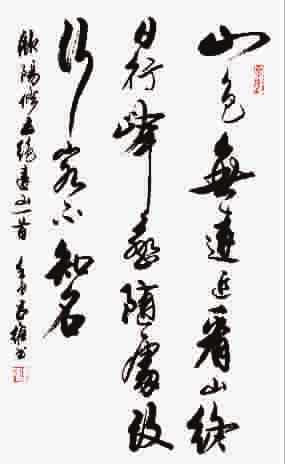 山色無遠近看山終
日行峰巒隨處改
行客不知名
歐陽修五絕遠山一首